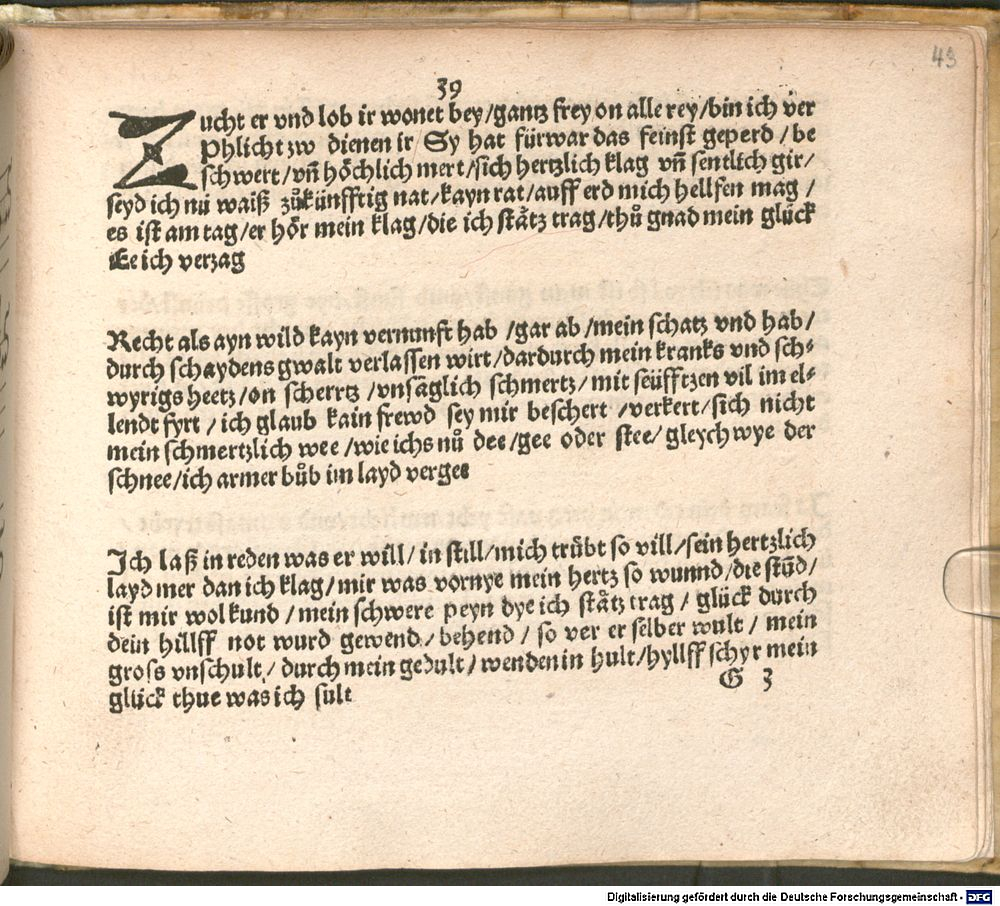 43
39
Zucht er vnd lob ir wonet bey/gantz frey on alle rey/bin ich ver
phlicht zw dienen ir/ Sy hat fürwar das feinst geperd/be
schwert/vñ höchlich mert/sich hertzlich klag vñ sentlich gir/
seyd ich nů waiß zůkünfftig nat/kayn rat/auff erd mich hellfen mag/
es ist am tag/er hör mein klag/die ich stätz trag/thů gnad mein glück
Ee ich verzag
Recht als ayn wild kayn vernunft hab/gar ab/mein schatz vnd hab/
durch schaydens gwalt verlassen wirt/dardurch mein kranks vnd sch⸗
wyrigs heetz/on scherrtz/vnsäglich schmertz/mit seüfftzen vil im el⸗
lendt fyrt/ich glaub kain frewd sey mir beschert/verkert/sich nicht
mein schmertzlich wee/wie ichs nů dee/gee oder stee/gleych wye der
schnee/ich armer bůb im layd vergee
Ich laß in reden was er will/in still/mich trübt so vill/sein hertzlich
layd mer dan ich klag/mir was vornye mein hertz so wunnd/die stūd/
ist mir wol kund/mein schwere peyn dye ich stätz trag/glück durch
dein hillff not wurd gewend/behend/so ver er selber wult/mein
gross vnschult/durch mein gedult/wenden in hult/hyllff schyr mein
glück thue was ich sult
G 3
Digitalisierung gefördert durch die Deutsche Forschungsgemeinschaft - DFG